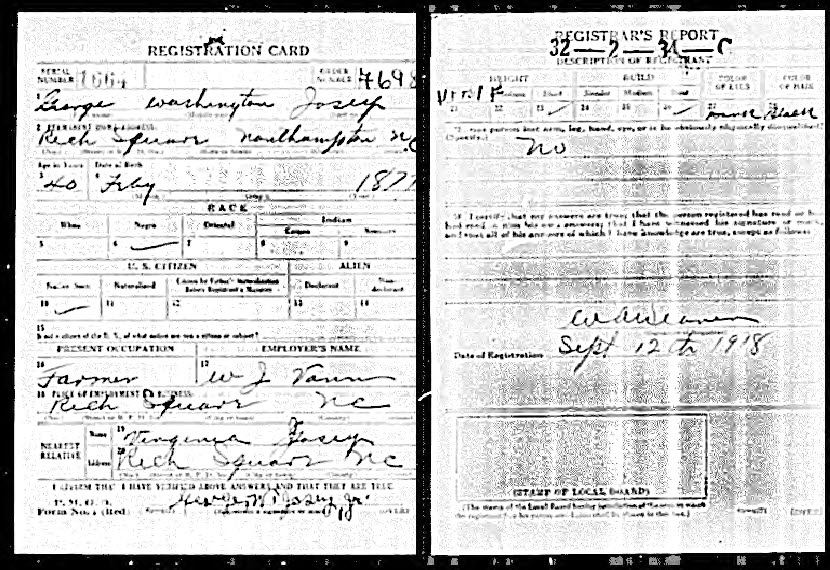 REGISTRATION CARD
SERIAL NUMBER 1664 ORDER NUMBER 4698
1 George Washington Josey
2 PERMANENT HOME ADDRESS:
Rich Square Northampton N.C
Age in Years Date of Birth
3 40 4 Feby 1877
RACE
White Negro Oriental Indian
5 6 7 8 9
U. S. CITIZEN ALIEN
Native Born Naturalized Citizen by Father's Naturalization Before Registrant's Majority Declarant Non-declarant
10 11 12 13 14
15
If not a citizen of the U. S., of what nation are you a citizen or subject?
PRESENT OCCUPATION EMPLOYER'S NAME
16 Farmer 17 W J Vann
18 PLACE OF EMPLOYMENT OR BUSINESS:
Rich Square NC
NEAREST RELATIVE
Name 19 Virginia Josey
Address 20 Rich Square NC
I AFFIRM THAT I HAVE VERIFIED ABOVE ANSWERS AND THAT THEY ARE TRUE
P. M. G. O.
Form No. 1 (Red)
George W Josey Jr
REGISTRAR'S REPORT
32—2—34—C
DESCRIPTION OF REGISTRANT
HEIGHT BUILD COLOR OF EYES COLOR OF HAIR
Medium Short Slender Medium Stout
21 22 23 24 25 26 27 Black
29 Has person lost arm, leg, hand, eye, or is he obviously physically disqualified?
No
30 I certify that my answers are true; that the person registered has read or has had read to him his own answers; that I have witnessed his signature or mark, and that all of his answers of which I have knowledge are true, except as follows:
W A Weaver
Date of Registration Sept 12th 1918
(STAMP OF LOCAL BOARD)